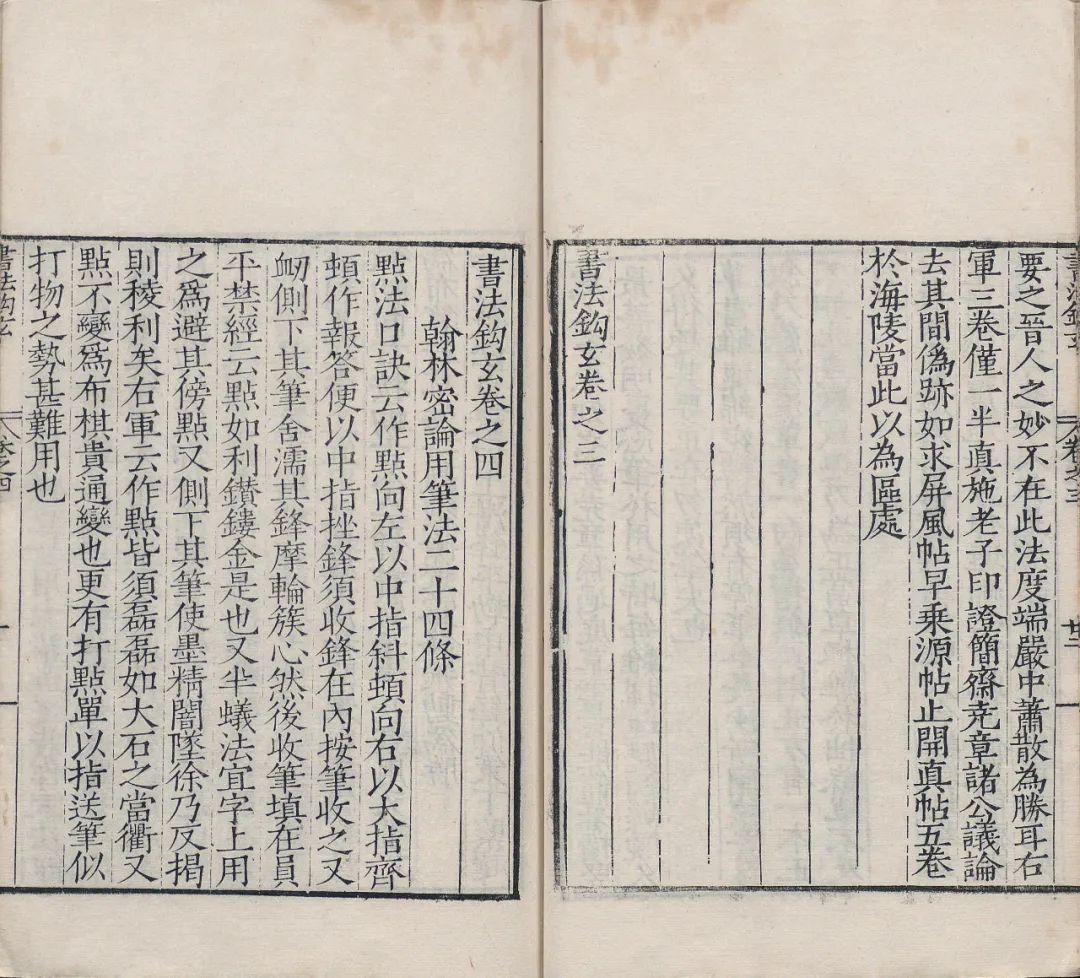 書法鈎玄 卷之三 廿二
要之晉人之妙不在此法度端嚴中蕭散為勝耳右
軍三卷僅一半真施老子印證簡齋堯章諸公議論
去其間僞跡如求屏風帖早乗源帖止開真帖五卷
於海陵當此以為區處
書法鈎玄卷之三
書法鈎玄卷之四
翰林密論用筆法二十四條
點法口訣云作點向左以中指斜頓向右以大指齊
頓作報答便以中指挫鋒須收鋒在內按筆收之又
衂側下其筆舍濡其鋒摩輪簇心然後收筆填在員
平禁經云點如利鑚鏤金是也又半蟻法宜字上用
之爲避其傍點又側下其筆使墨精闇墜徐乃反揭
則稜利矣右軍云作點皆須磊磊如大石之當衢又
點不變爲布棋貴通變也更有打點單以指送筆似
打物之勢甚難用也
書法鈎玄 卷之四 一